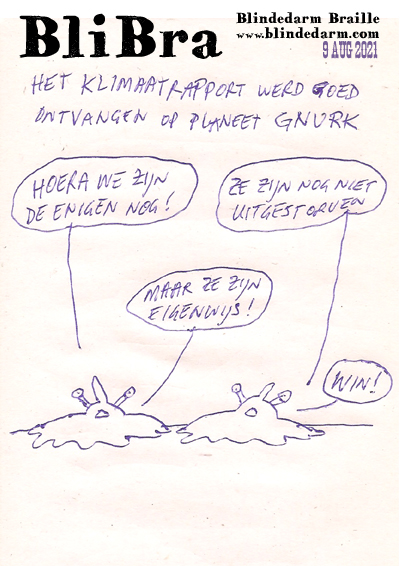 BliBra
Blindedarm Braille
www.blindedarm.com
9 AUG 2021
HET KLIMAATRAPPORT WERD GOED
ONTVANGEN OP PLANEET GNURK
HOERA WE ZIJN
DE ENIGEN NOG!
ZE ZIJN NOG NIET
UITGESTORVEN
MAAR ZE ZIJN
EIGENWIJS!
WIN!